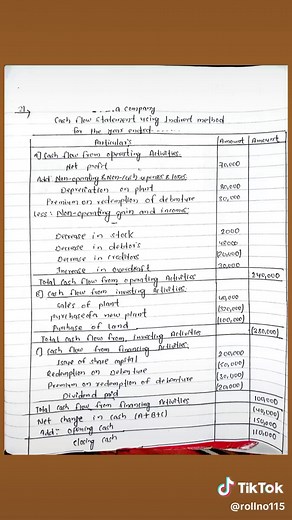 21)
A Company
Cash flow Statement using Indirect method
for the year ended
Particulars Amount Amount
A) Cash flow from operating Activities.
Net profit 70,000
Add: Non-operating & Non-cash expenses & loss
Depreciation on plant
Premium on redemption of debenture 30,000
Less: Non-operating gain and income
Decrease in stock 2000
Decrease in debtors
Decrease in creditors
Increase in overdraft
Total cash flow from operating Activities 240,000
B) Cash flow from investing Activities.
Sales of plant
Purchase of a new plant
Purchase of land (100,000)
Total cash flow from Investing Activities (280,000)
C) Cash flow from financing Activities.
Issue of share capital 200,000
Redemption on Debenture (50,000)
Premium on redemption of debenture (30,000)
Dividend paid (20,000)
Total cash flow from financing Activities 100,000
Net change in cash (A+B+C)
Add:- opening cash 150,000
closing cash
TikTok
@rollno115